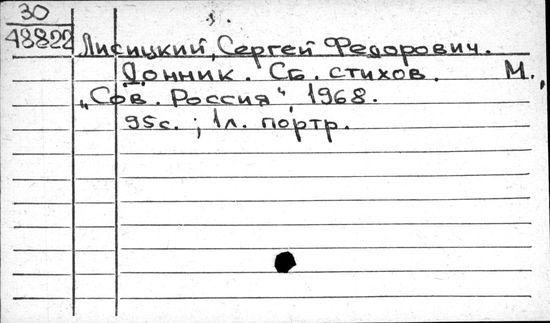 30
48822
Лисицкий, Сергей Федорович.
Донник. Сб. стихов. М.,
„Сов. Россия“, 1968.
95с.; 1л. портр.